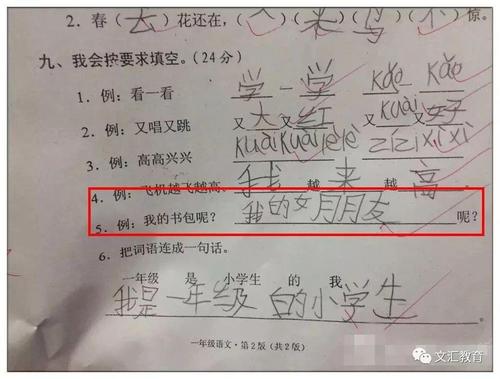 2. 春(去)花还在,(人)(来)(鸟)(不)惊。
九、我会按要求填空。(24分)
1. 例:看一看 学一学 kǎo一kǎo
2. 例:又唱又跳 又大又红 又kuài又好
3. 例:高高兴兴 kuàikuàilèlè zǐzǐxìxì
4. 例:飞机越飞越高。 我越来越高。
5. 例:我的书包呢? 我的女朋友呢?
6. 把词语连成一句话。
一年级 是 小学生 的 我
我是一年级的小学生
一年级语文·第2版(共2版)
文汇教育